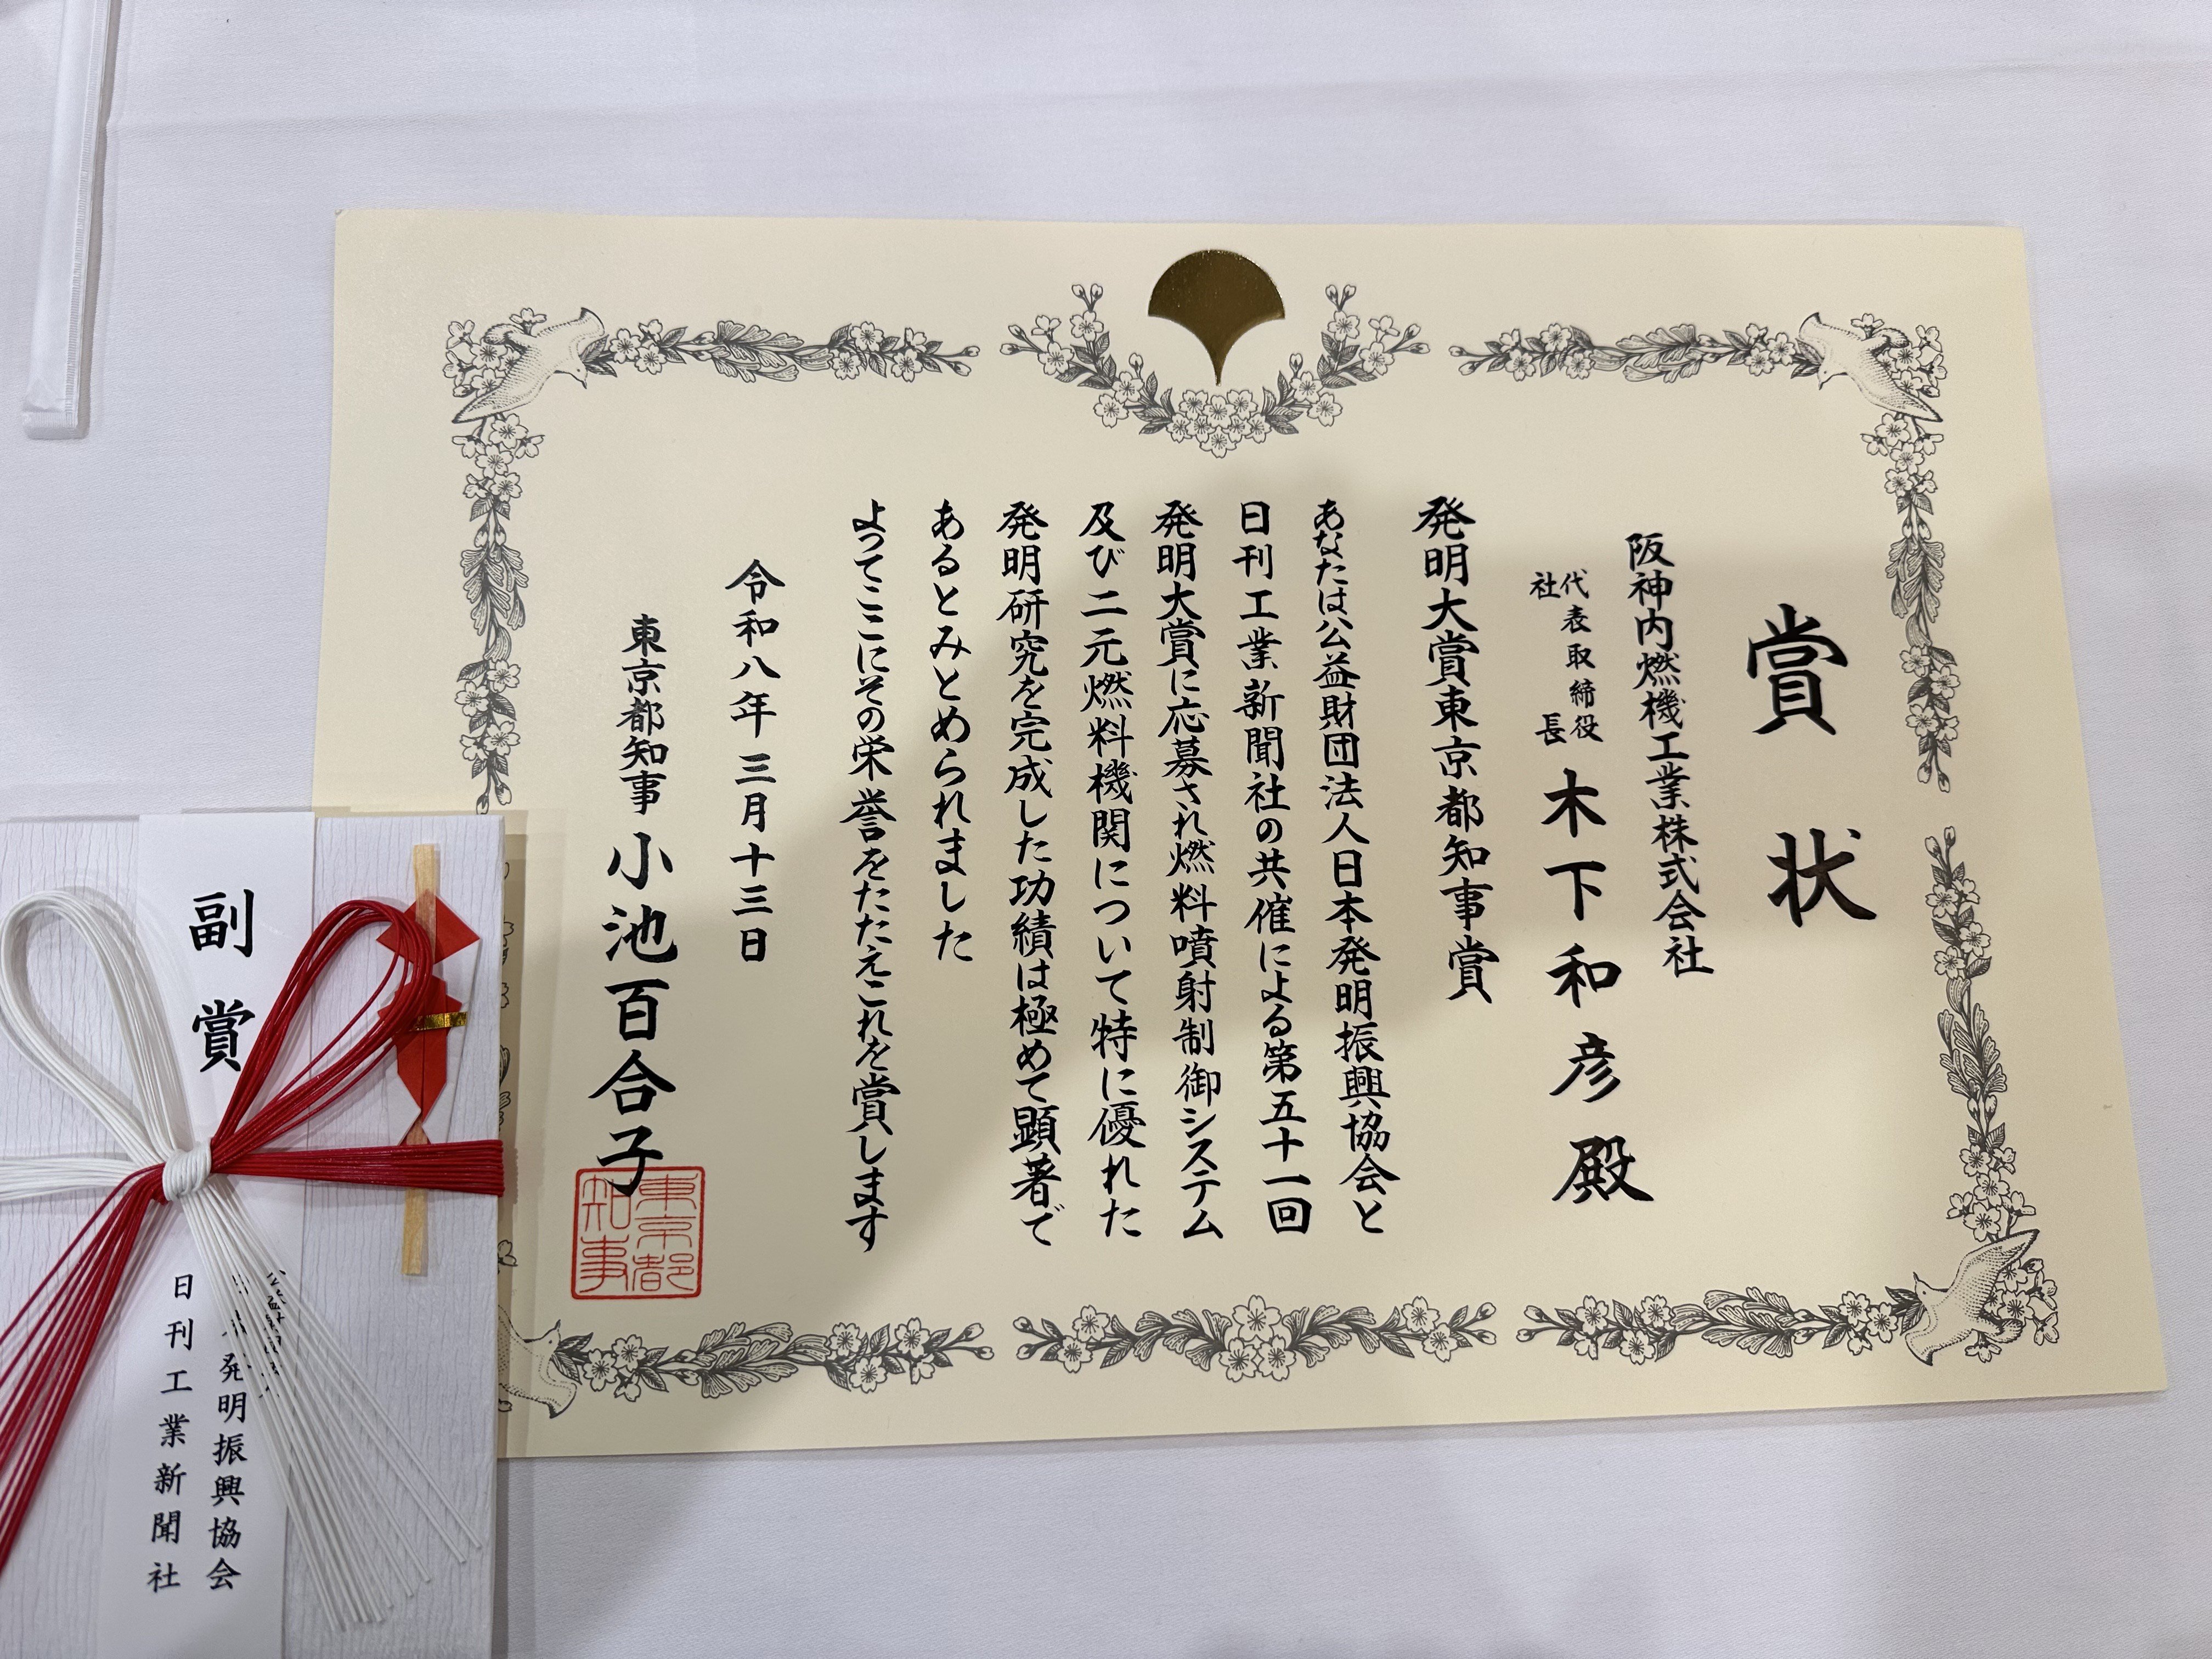 賞状
阪神内燃機工業株式会社
代表取締役
社長
木下和彦殿
発明大賞東京都知事賞
あなたは公益財団法人日本発明振興協会と
日刊工業新聞社の共催による第五十一回
発明大賞に応募され燃料噴射制御システム
及び二元燃料機関について特に優れた
発明研究を完成した功績は極めて顕著で
あるとみとめられました
よってここにその栄誉をたたえこれを賞します
令和八年三月十三日
東京都知事 小池百合子
東京都
知事
副賞
発明振興協会
日刊工業新聞社